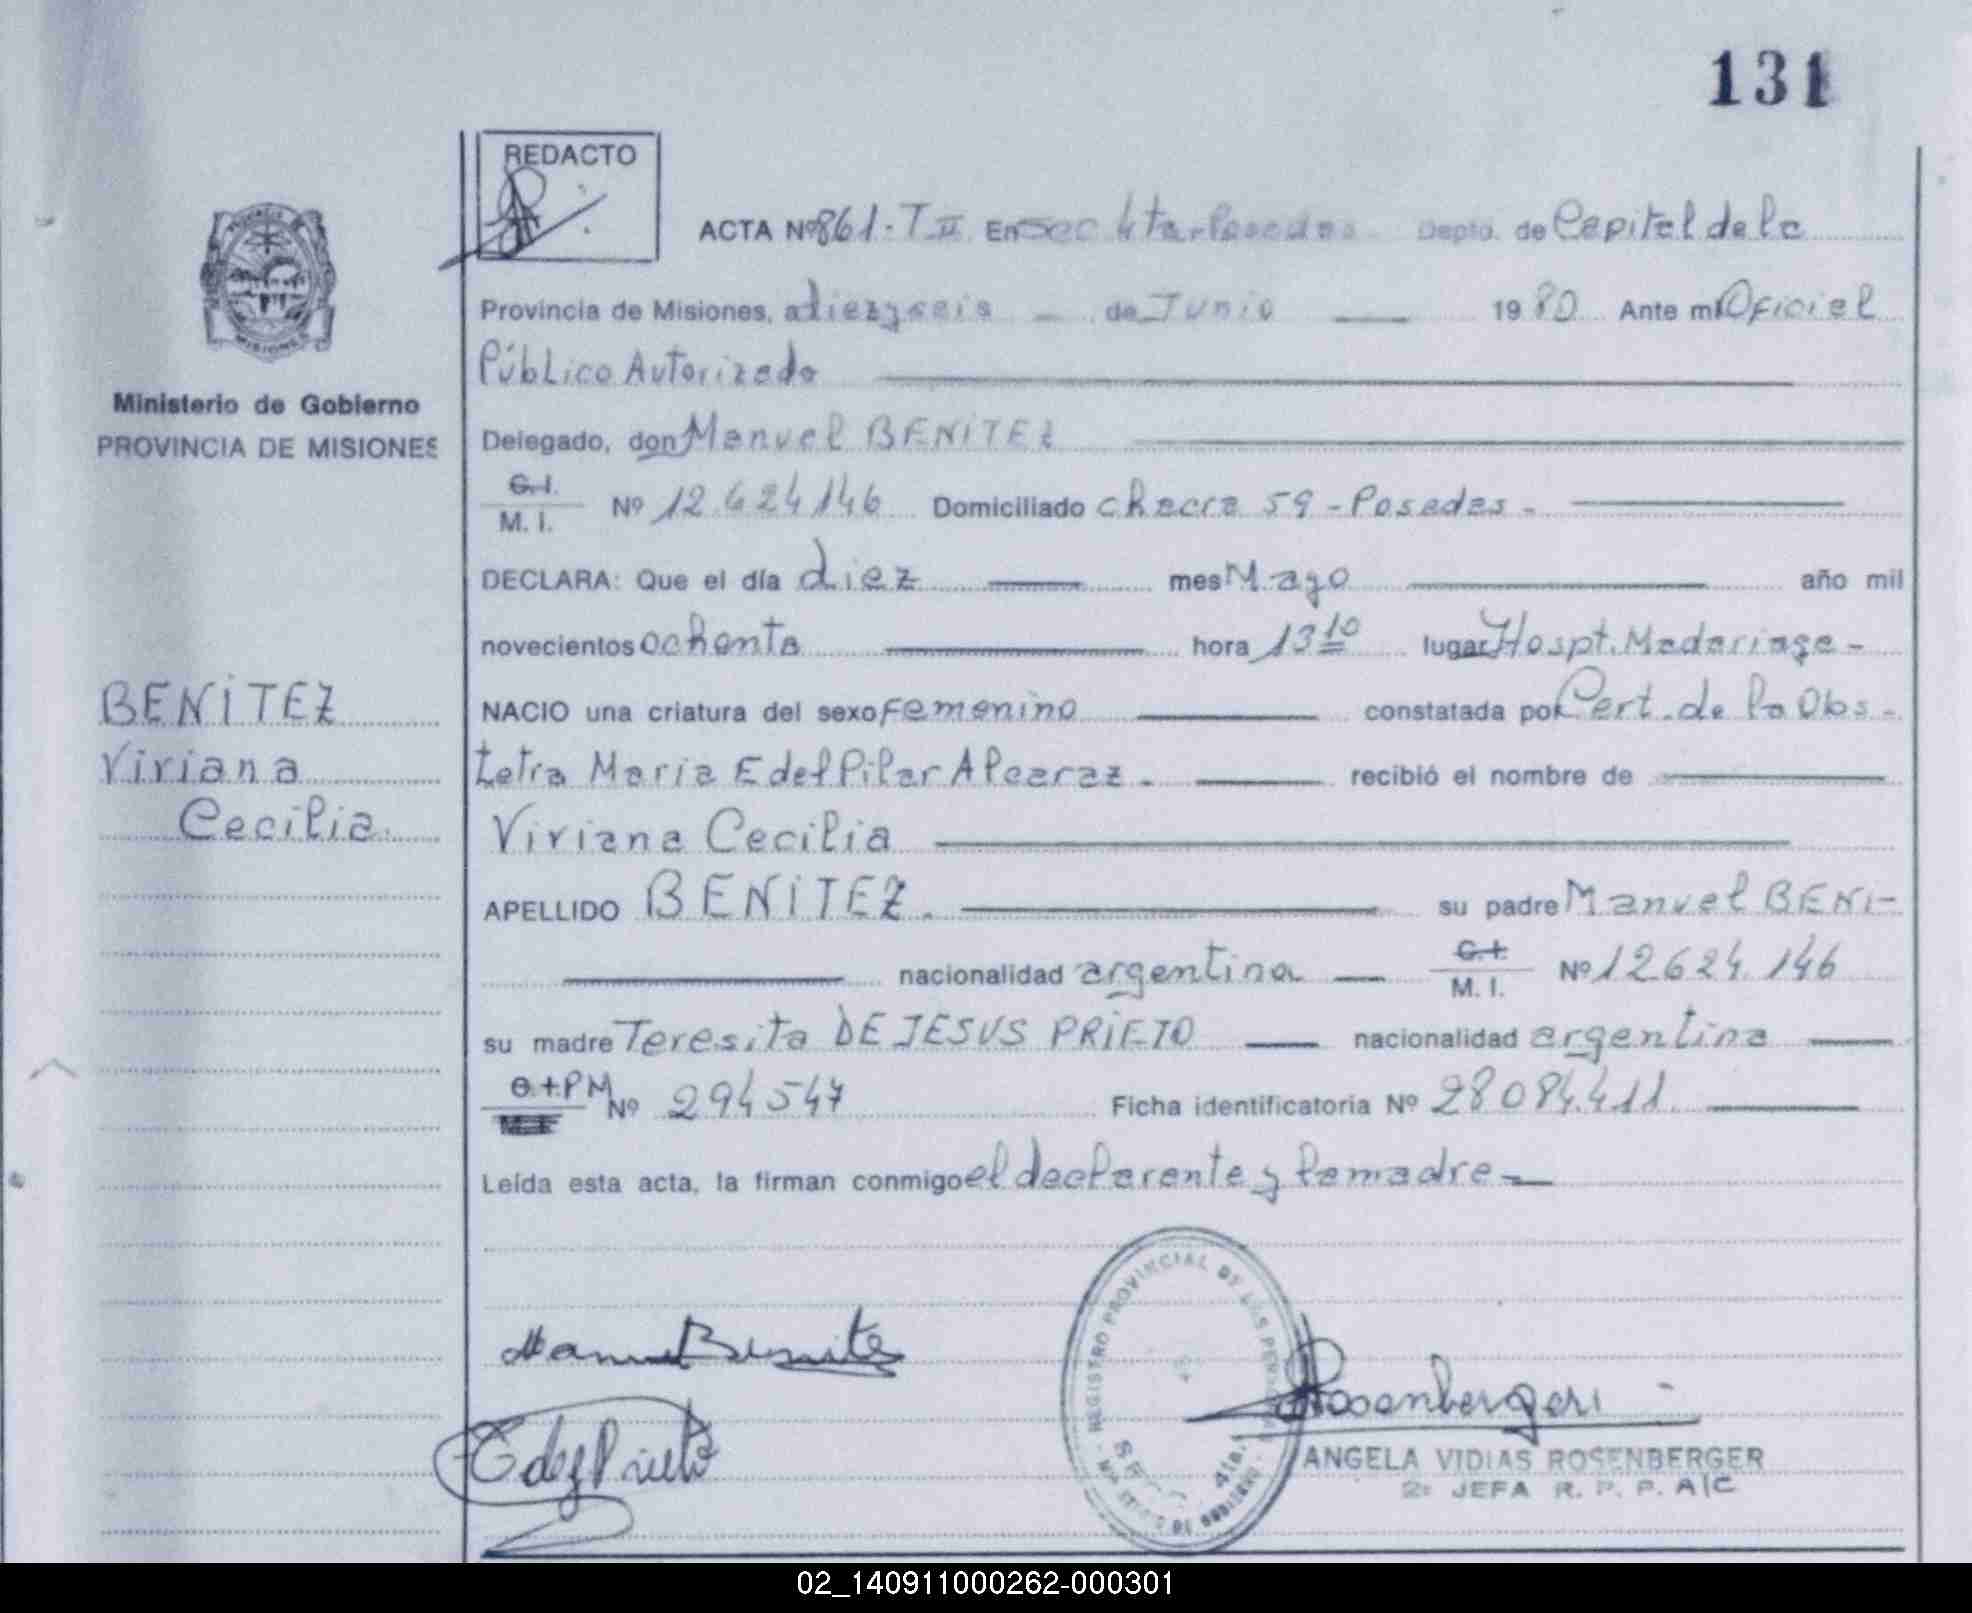 131
REDACTO
ACTA Nº 861-T II En Sec 4ta-Posadas Depto. de Capital de la
Provincia de Misiones, a diezyseis de Junio 1980 Ante mi Oficial
Público Autorizado
Ministerio de Gobierno
PROVINCIA DE MISIONES
Delegado, don Manuel BENITEZ
C.I. M. I. Nº 12.624146 Domiciliado chacra 59-Posadas-
DECLARA: Que el día diez mes Mayo año mil
novecientos ochenta hora 13 10 lugar Hospt. Madariaga-
BENITEZ
NACIO una criatura del sexo femenino constatada por Cert. de la Obs-
Viriana
tetra Maria E del Pilar Alcaraz. recibió el nombre de
Cecilia.
Viriana Cecilia
APELLIDO BENITEZ. su padre Manuel BENI-
nacionalidad argentina C.I. M. I. Nº 12624.146
su madre Teresita DE JESUS PRIETO nacionalidad argentina
C.I. PM Nº 294547 Ficha identificatoria Nº 28084.411
Leída esta acta, la firman conmigo el declarante y la madre
REGISTRO PROVINCIAL DE LAS PERSONAS
4ta.
Manuel Benitez
Rosenberger
T de J Prieto
ANGELA VIDIAS ROSENBERGER
2º JEFA R. P. P. A/C
02_140911000262-000301